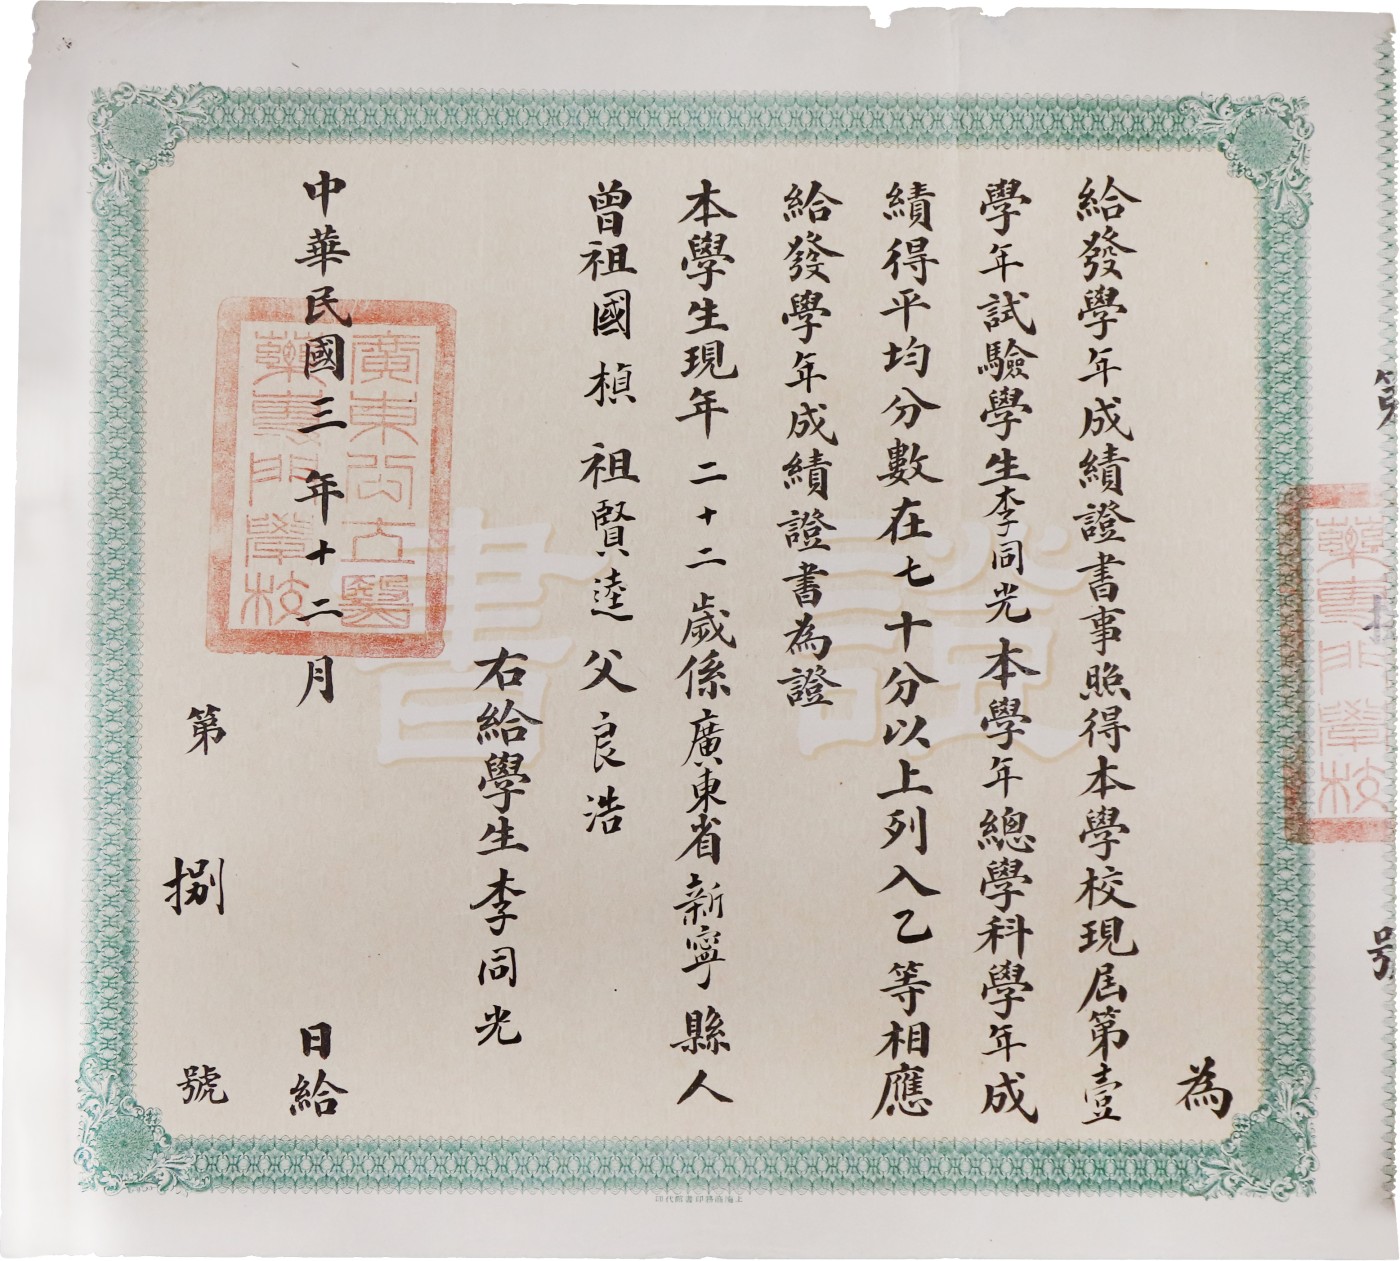 為
給發學年成績證書事照得本學校現屆第壹
學年試驗學生李同光本學年總學科學年成
績得平均分數在七十分以上列入乙等相應
給發學年成績證書為證
本學生現年二十二歲係廣東省新寧縣人
曾祖國楨 祖賢逵 父良浩
右給學生李同光
中華民國三年十二月 日給
第捌號
證書
廣東公立醫
藥專門學校
藥專門學校
上海商務印書館代印